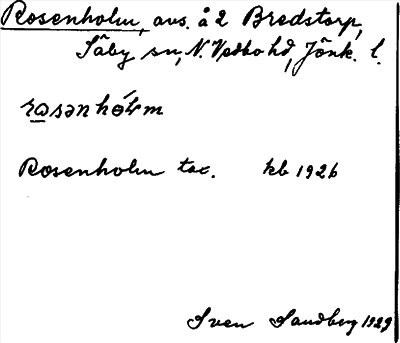 Rosenholm, avs. å 2 Bredstorp,
Säby sn, N. Vedbo hd, Jönk. l.
rosənhólm
Rosenholm tax. kb 1926
Sven Sandberg 1929